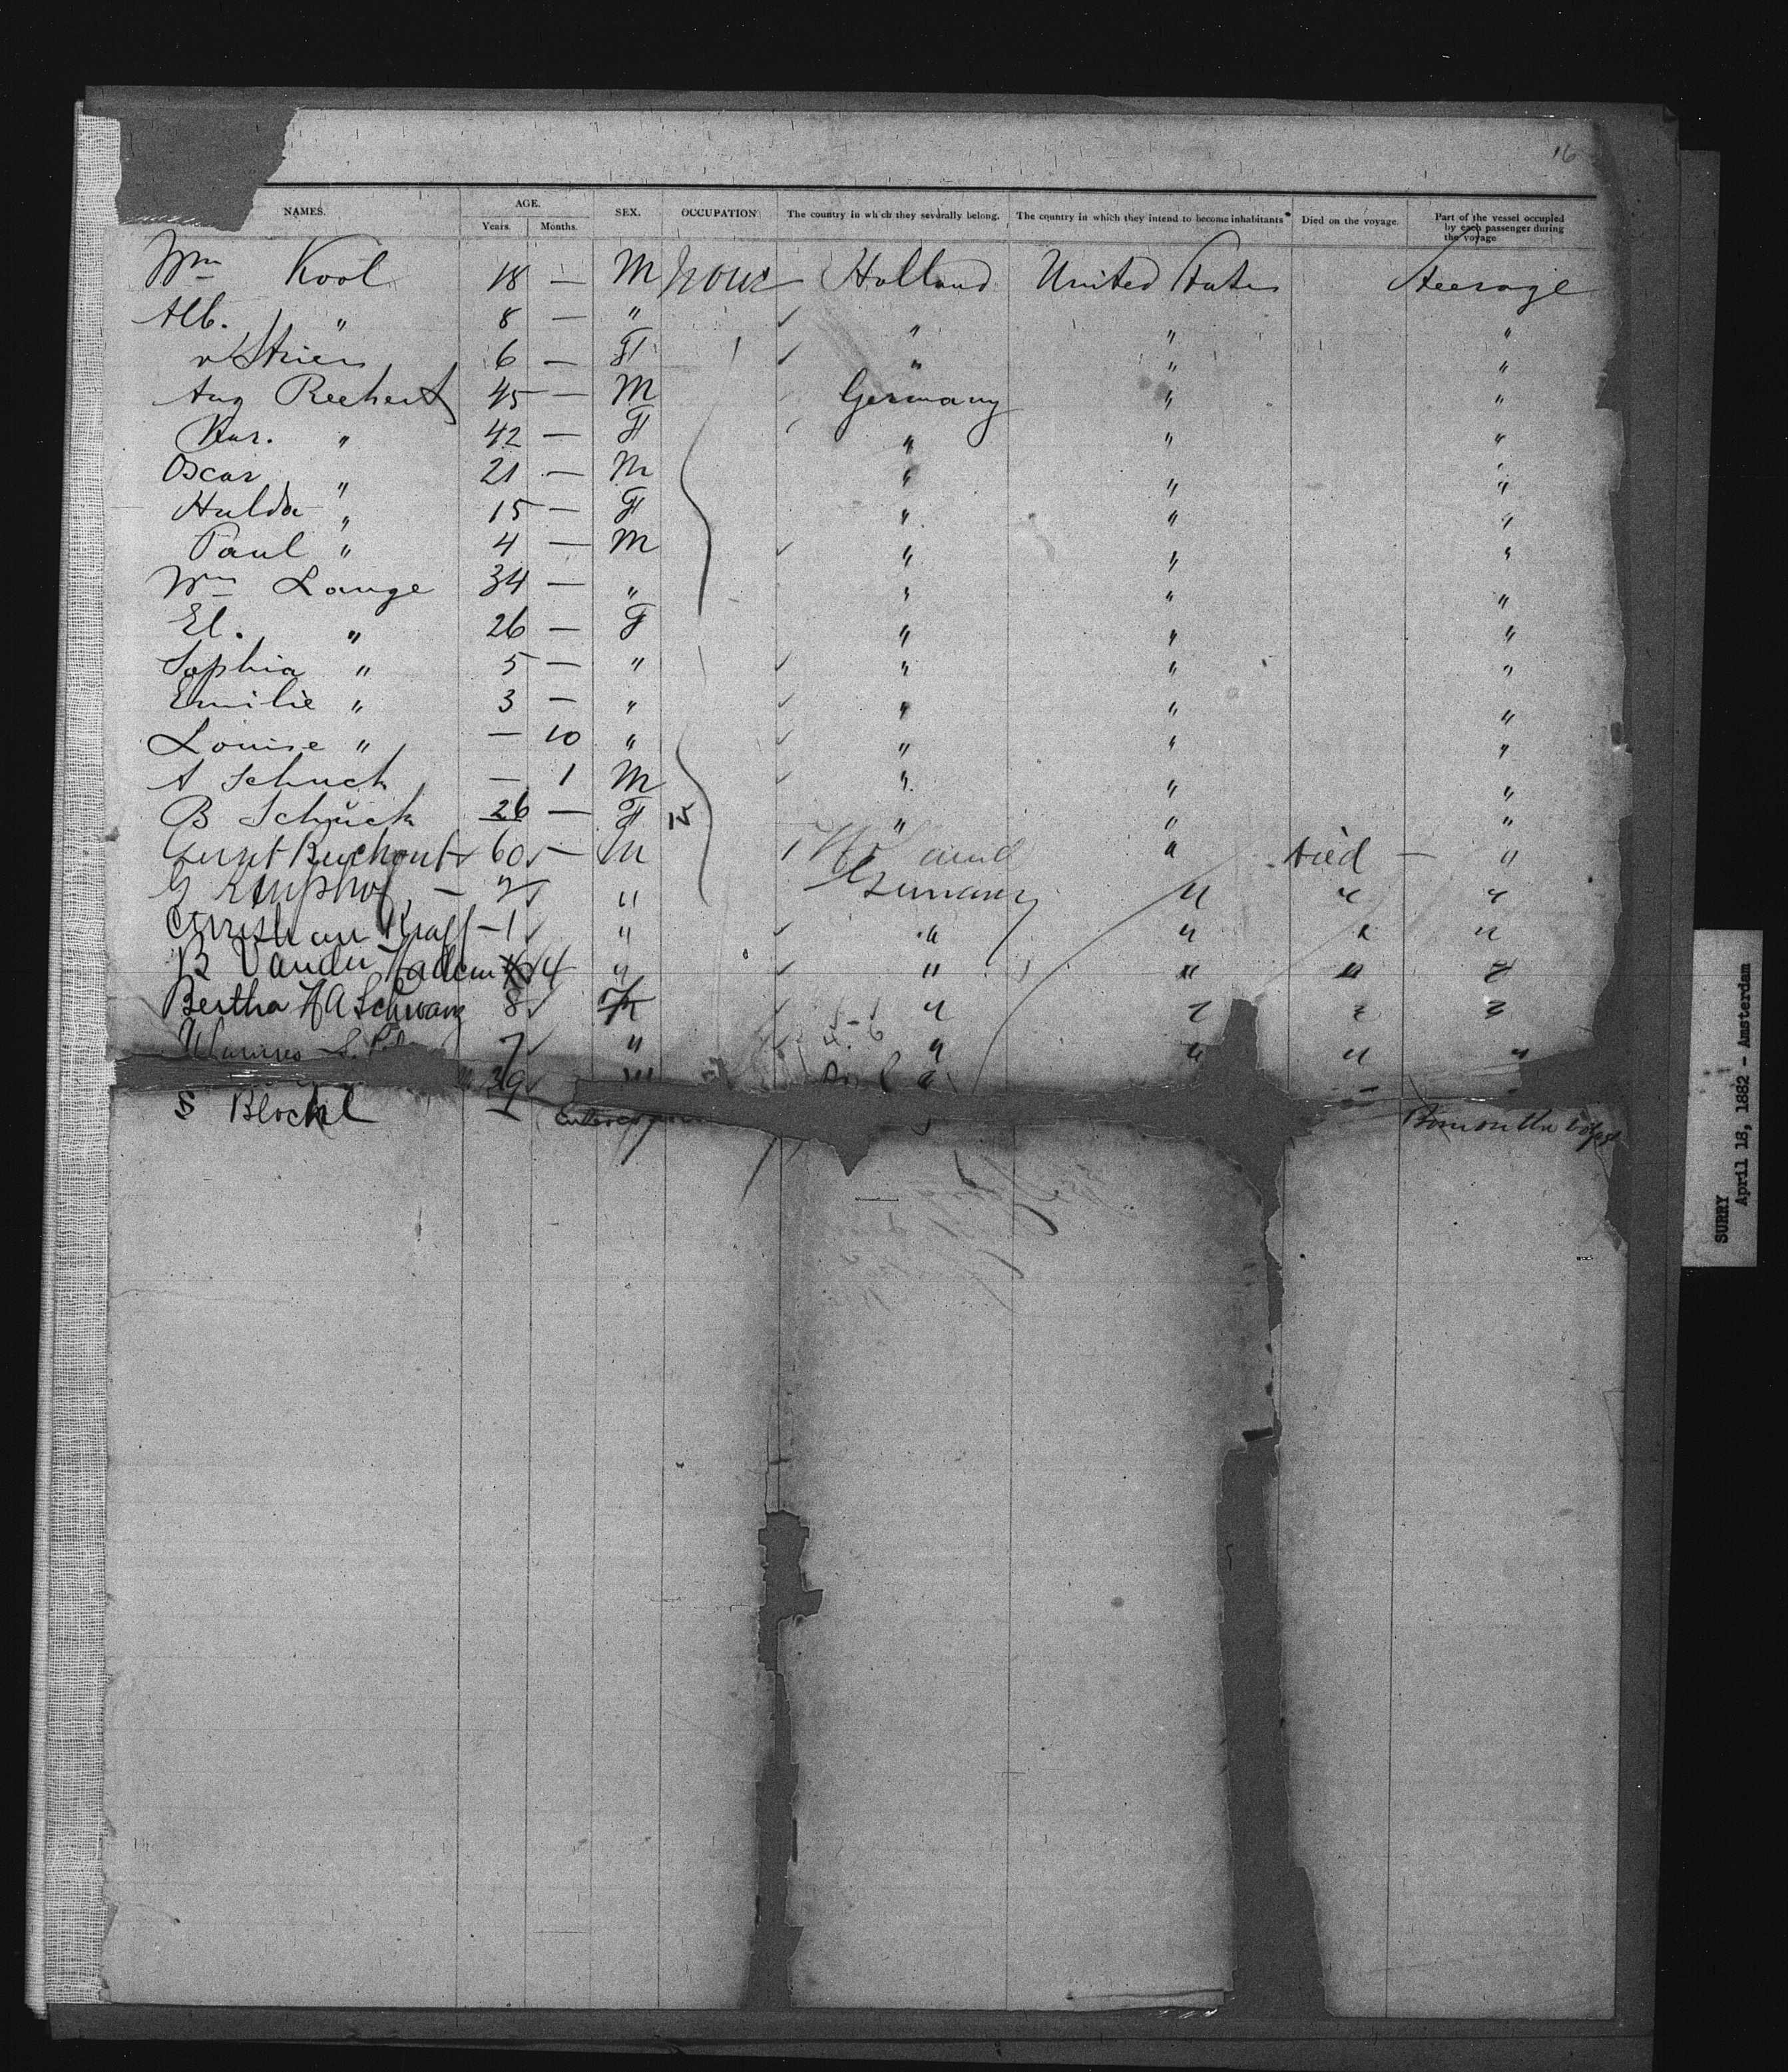 16
NAMES. AGE. SEX. OCCUPATION The country in which they severally belong. The country in which they intend to become inhabitants Died on the voyage. Part of the vessel occupied by each passenger during the voyage
Years. Months.
Wm Kool 18 — M none Holland United States Steerage
Alb. " 8 — " " " "
6 — F " " "
Aug Reehert 45 — M Germany " "
Kar. " 42 — F " " "
Oscar " 21 — M " " "
Hulda " 15 — F " " "
Paul " 4 — M " " "
Wm Lange 34 — " " " "
El. " 26 — F " " "
Sophia " 5 — " " " "
Emilie " 3 — " " " "
Louise " — 10 " " " "
A Schuck — 1 M " " "
B Schuck 26 — F " " "
60 — M Holland " died — "
G " Germany " " "
Christian Kraff — 1 " " " " "
B Vander 4 " " " " "
Bertha H A Schwarz 8 " " " "
7 " " " " "
39 "
S Blochl Born on the
SURRY
April 18, 1882 - Amsterdam